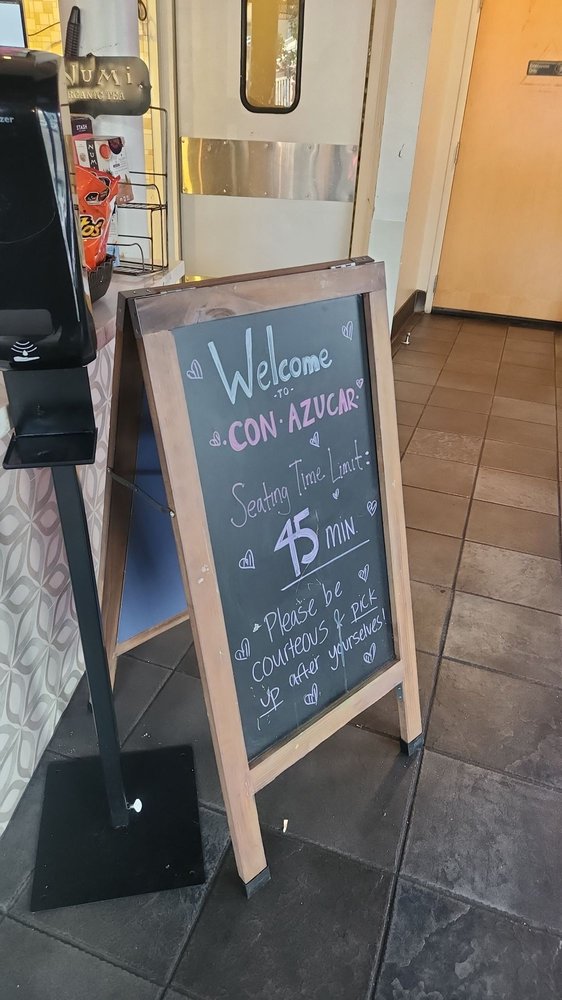 NUMi
ORGANIC TEA
zer
STASH
NUMi
Welcome
-TO-
·CON AZUCAR·
Seating Time Limit:
45 MIN.
Please be
courteous & PICK
UP after yourselves!